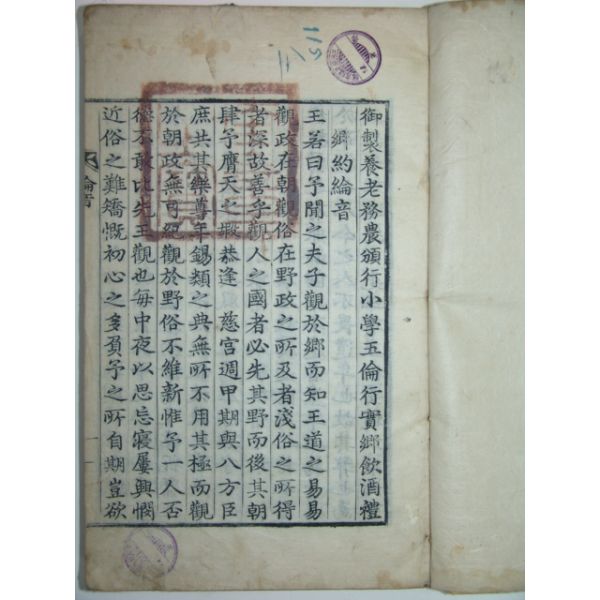 御製養老務農頒行小學五倫行實鄉飮酒禮
鄉約綸音
王若曰予聞之夫子觀於鄉而知王道之易易
觀政在朝觀俗在野政之所及者淺俗之所得
者深故善乎觀人之國者必先其野而後其朝
肆予膺天之嘏恭逢 慈宮週甲期與八方臣
庶共其樂尊年錫類之典無所不用其極而觀
於朝政無可紀觀於野俗不維新惟予一人否
德不敢比先王觀也每中夜以思忘寢屢興憫
近俗之難矯慨初心之多負予之所自期豈欲
綸音
一
115